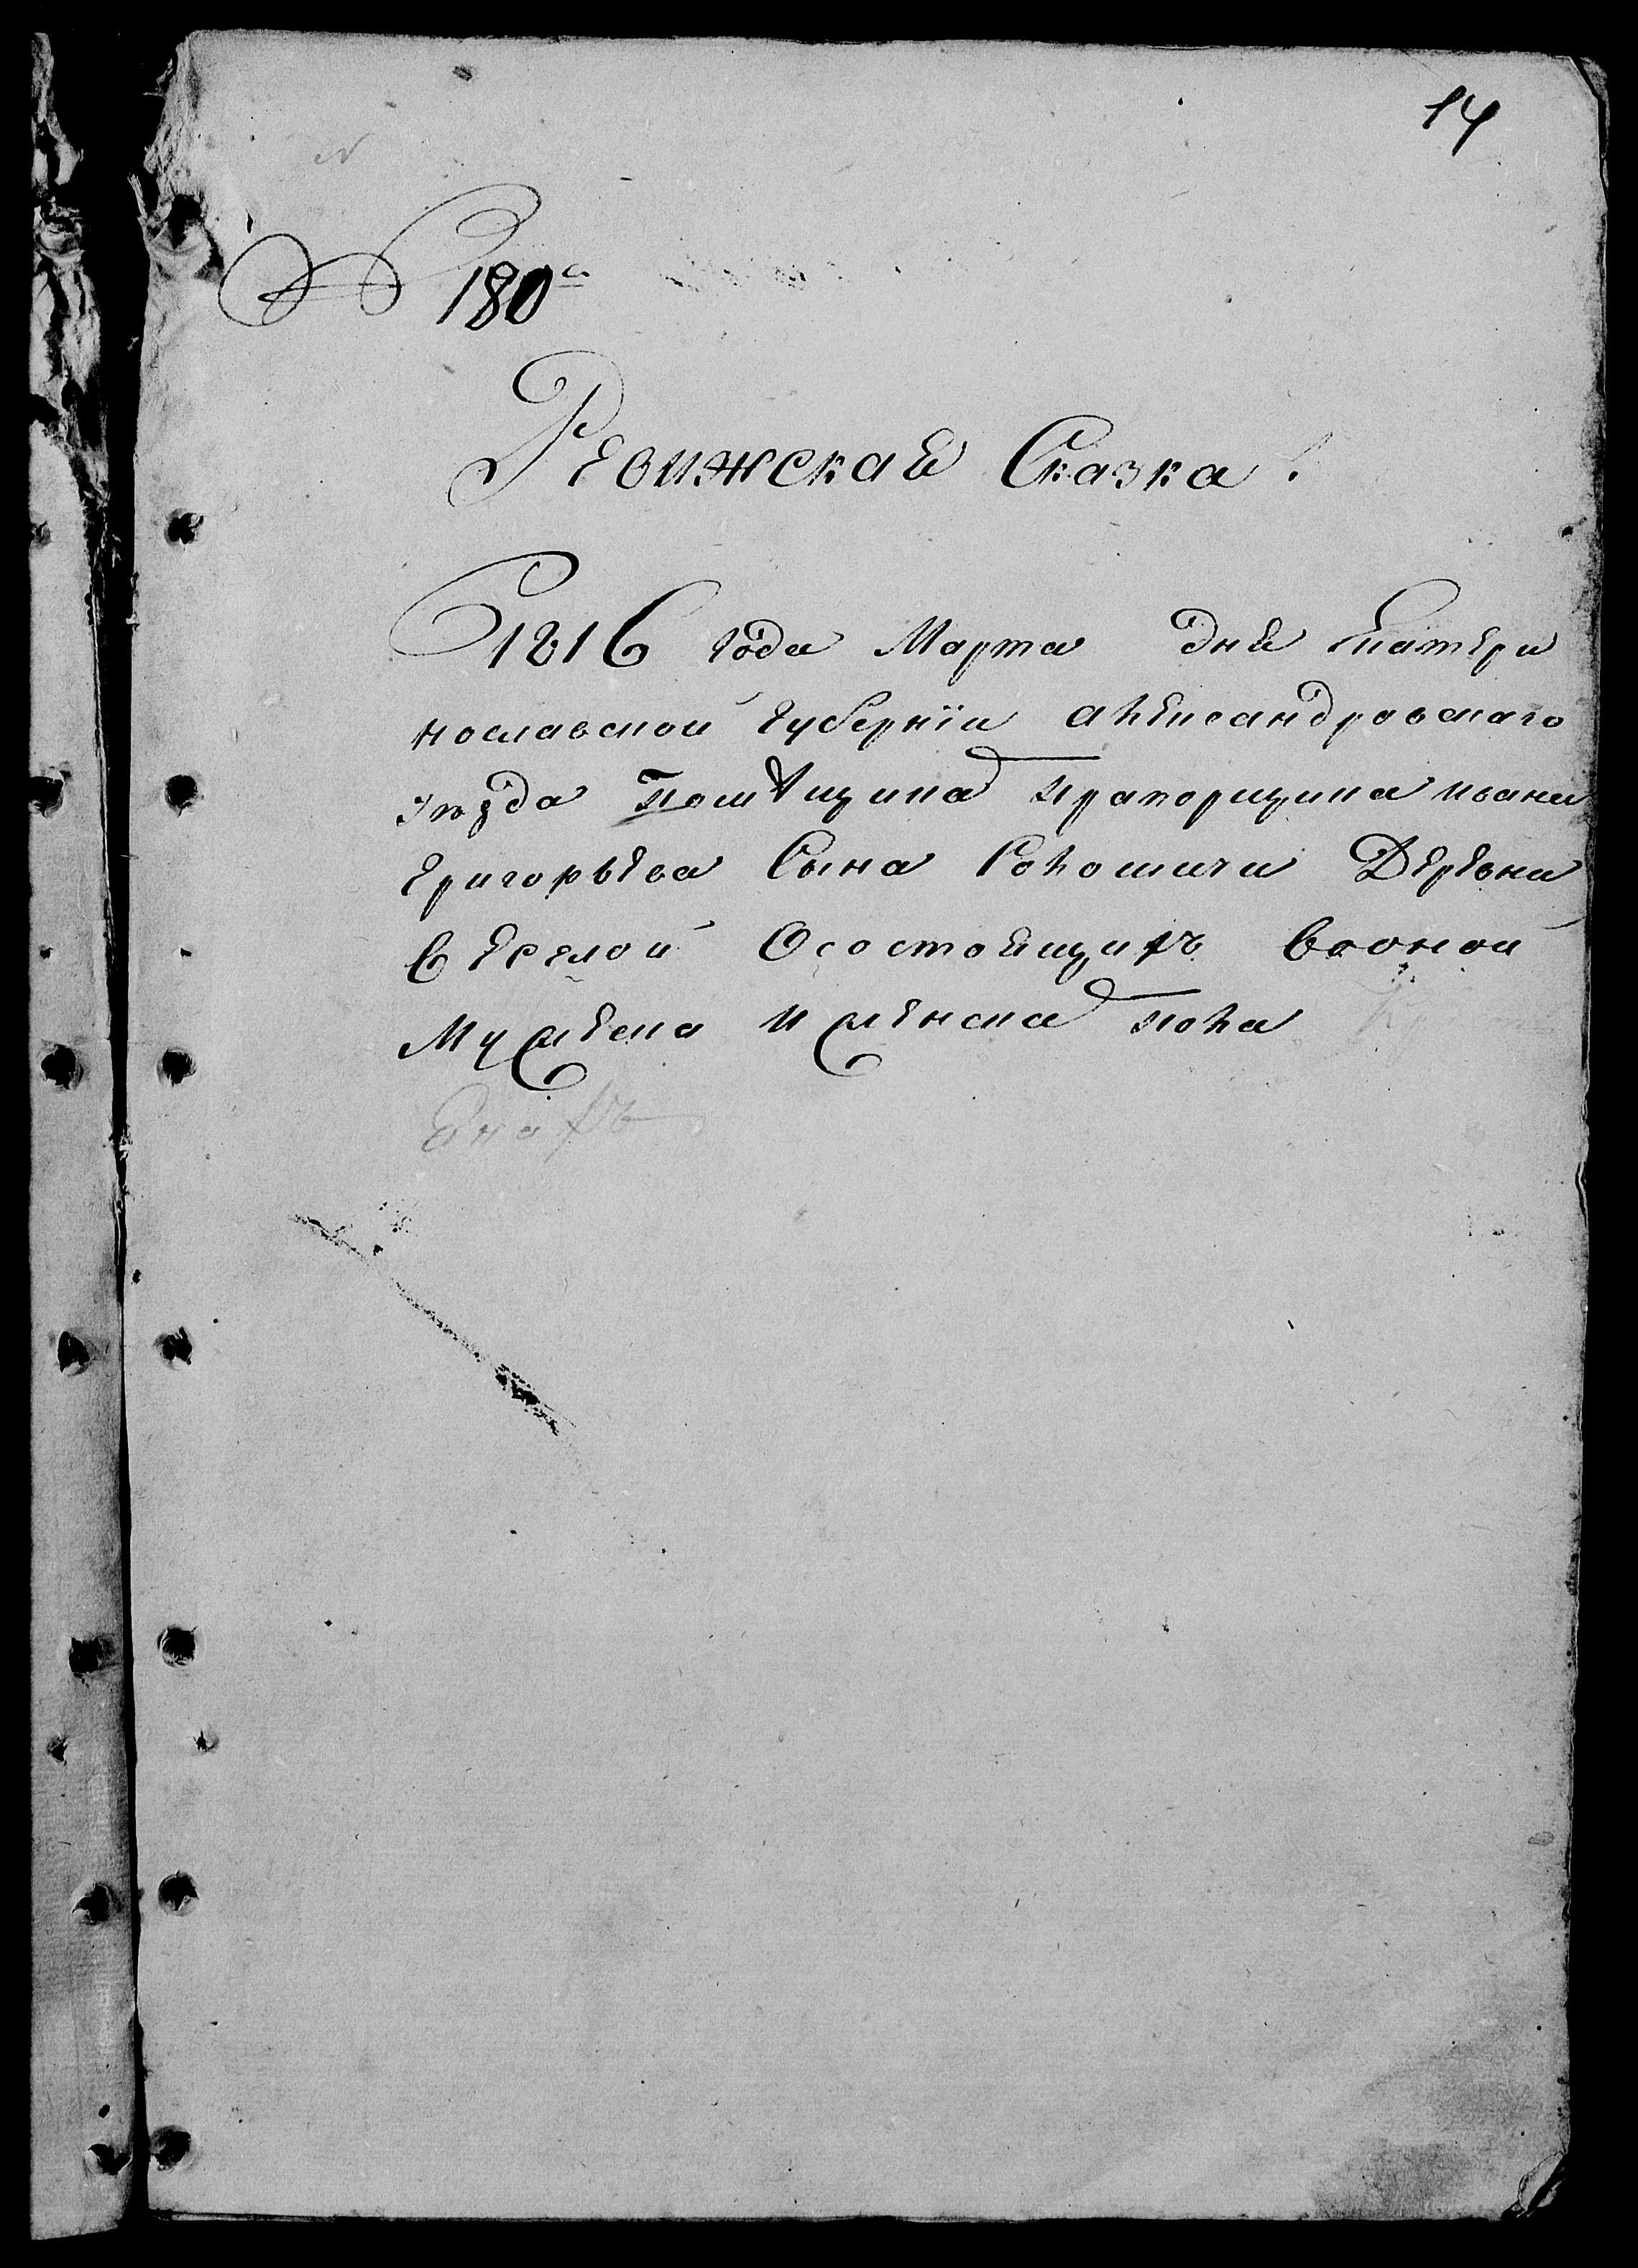 14
№ 180й
Ревижская Сказка.
1816 года Марта дня Екатери
нославской губернїи александровскаго
уѣзда помѣщика прапорщика ивана
Григорьева Сына Соломичи Деревни
веселой Осостоящихъ вооной
мужеска иженска пола